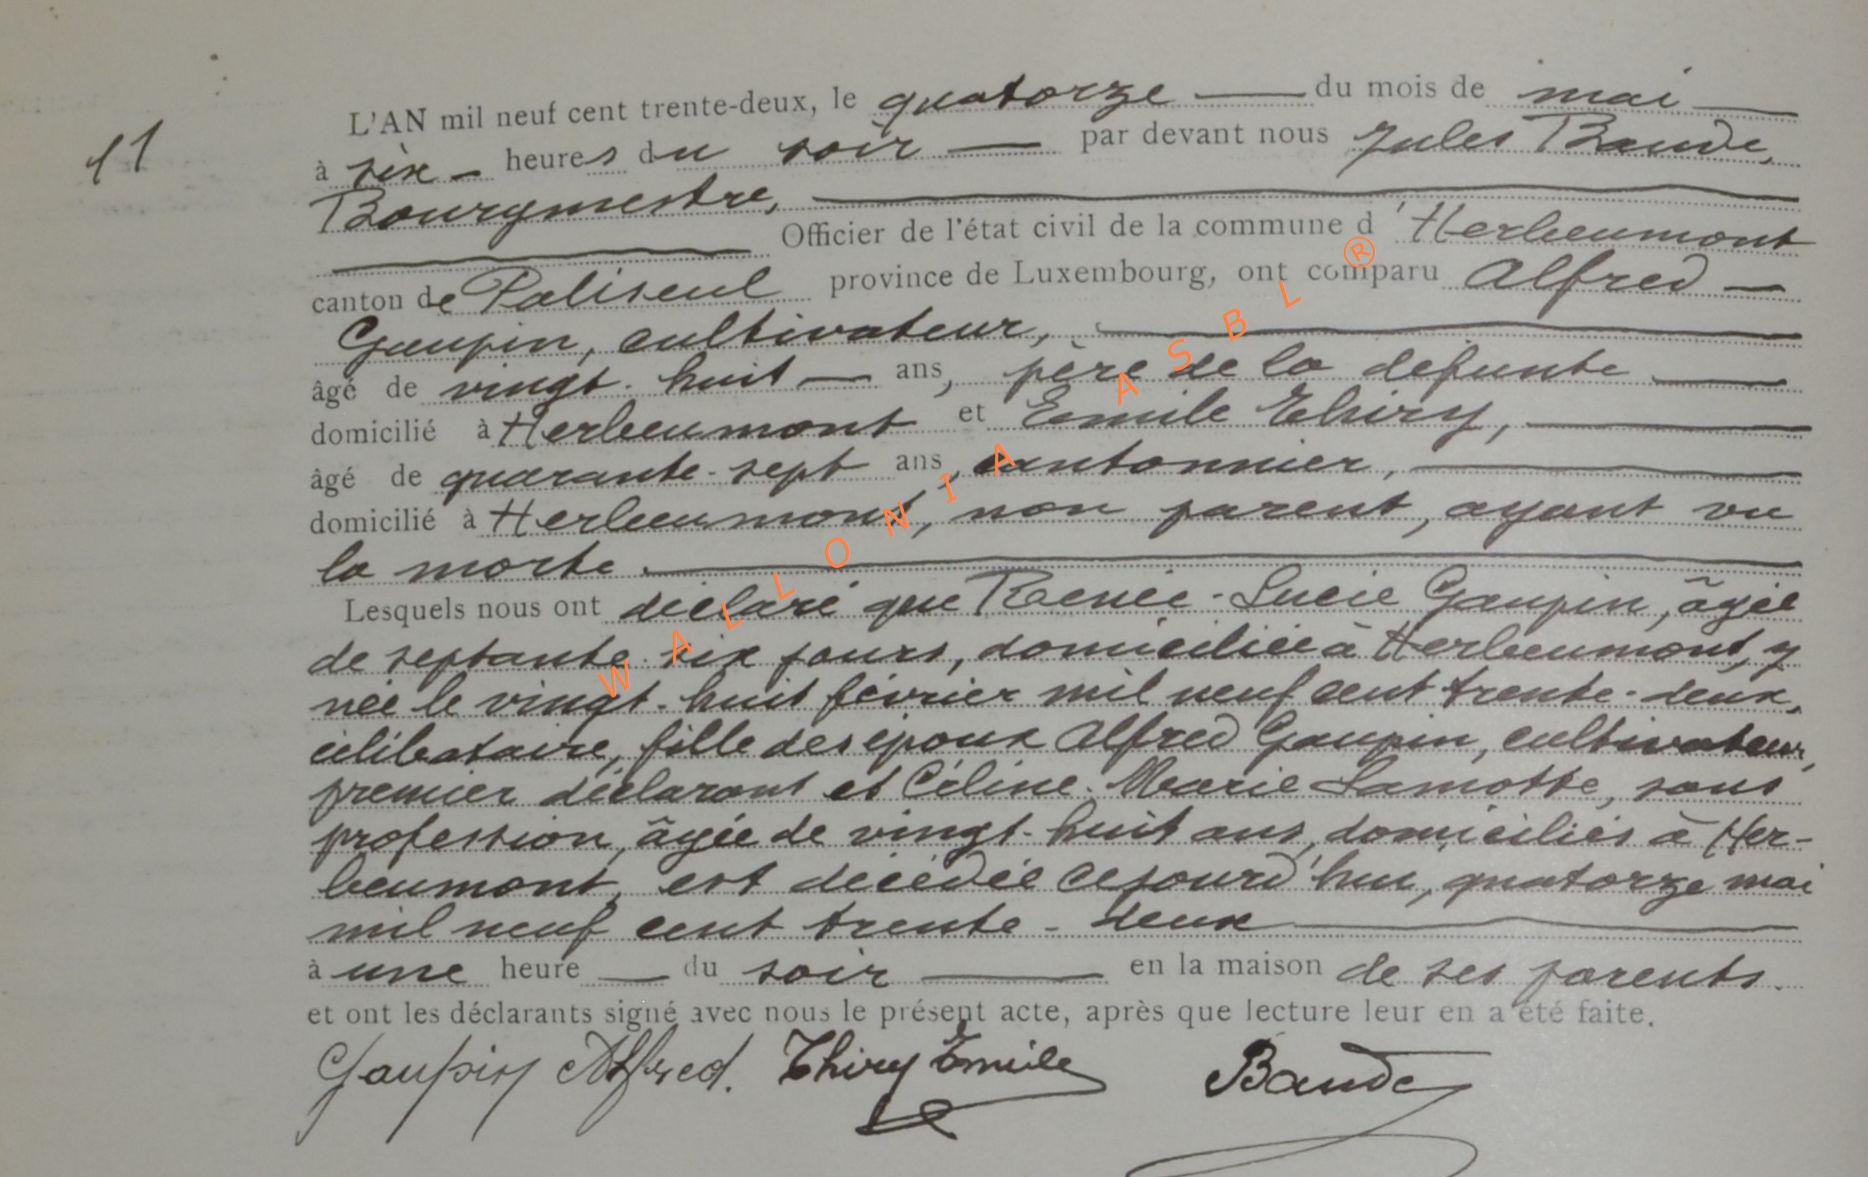 11
L'AN mil neuf cent trente-deux, le quatorze du mois de mai
à six heures du soir par devant nous Jules Baude,
Bourgmestre,
Officier de l'état civil de la commune d'Herbeumont
canton de Paliseul province de Luxembourg, ont comparu Alfred
Gaupin, cultivateur,
âgé de vingt-huit ans, père de la défunte
domicilié à Herbeumont et Emile Thiry,
âgé de quarante-sept ans, cantonnier,
domicilié à Herbeumont, non parent, ayant vu
la morte.
Lesquels nous ont déclaré que Renée-Lucie Gaupin, âgée
de septante-six jours, domiciliée à Herbeumont, y
née le vingt-huit février mil neuf cent trente-deux,
célibataire, fille des époux Alfred Gaupin, cultivateur,
premier déclarant et Céline-Marie Lamotte, sans
profession, âgée de vingt-huit ans, domiciliés à Her-
beumont, est décédée cejourd'hui, quatorze mai
mil neuf cent trente-deux
à une heure du soir en la maison de ses parents.
et ont les déclarants signé avec nous le présent acte, après que lecture leur en a été faite.
Gaupin Alfred. Thiry Emile Baude
WALLONIA ASBL ®